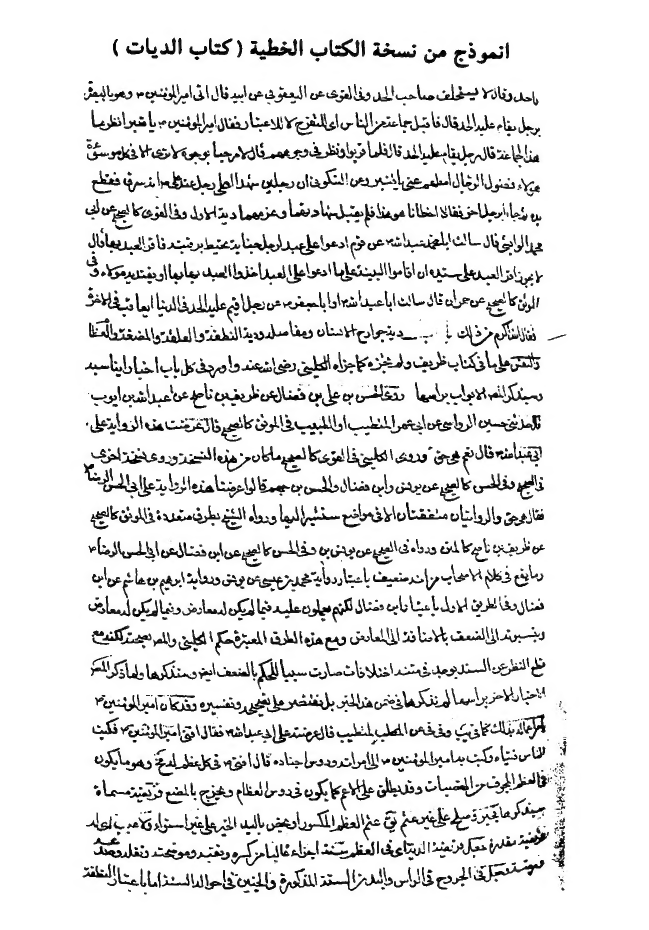 انموذج من نسخة الكتاب الخطية ( كتاب الديات )
واحد وقال لا يستحلف صاحب الحد وفى القوى عن اليعقوبى عن ابيه قال اتى امير المؤمنين ع وهو بالبصرة
برجل يقام عليه الحد قال فاقبل جماعة من الناس اى للتفرج لا للاعتبار فقال امير المؤمنين ع يا قنبر انظر ما
هذه الجماعة قال رجل يقام عليه الحد قال فلما قربوا ونظر فى وجوههم قال لا مرحبا بوجوه لا ترى الا فى كل سوء
هؤلاء فضول الرجال امطهم عنى يا قنبر وعن السكونى ان رجلين شهدا على رجل عند على ع انه سرق فقطع
يده ثم جاءا برجل اخر فقالا اخطأنا هو هذا فلم يقبل شهادتهما وغرمهما دية الاول وفى القوى كالصحيح عن ابى
محمد الوابشى قال سألت ابا عبد الله ع عن قوم ادعوا على عبد جناية تحيط برقبته فاقر العبد بها قال
لا يجوز اقرار العبد على سيده ان اقاموا البينة على ما ادعوا على العبد اخذوا العبد بها او يفتديه مولاه وفى
الموثق كالصحيح عن حمران قال سألت ابا عبد الله او ابا جعفر ع عن رجل اقيم عليه الحد فى الدنيا ايعاقب فى الآخرة
فقال الله اكرم من ذلك باب دية جوارح الانسان ومفاصله ودية النطفة والعلقة والمضغة والعظم
والنفس على ما فى كتاب ظريف وله مجزءة كما جزاه الكلينى رضى الله عنه واورد فى كل باب اخبارا
وسيذكر الابواب براسها روى الحسن بن على بن فضال عن ظريف بن ناصح عن عبد الله بن ايوب
قال حدثنى حسين الرواسى عن ابى عمر المتطبب او الطبيب فى الموثق كالصحيح قال عرضت هذه الرواية على
ابى عبد الله ع قال نعم هى حق وروى الكلينى فى القوى كالصحيح من هذه النسخة وروى نسخة اخرى
فى الصحيح وفى الحسن كالصحيح عن يونس وابن فضال والحسن بن جهم قالوا عرضنا هذه الرواية على ابى الحسن الرضا ع
فقال هو حق والروايتان متفقتان الا فى مواضع سنشير اليها ورواه الشيخ بطرق متعددة فى الموثق كالصحيح
عن ظريف بن ناصح كالمتن ورواه فى الصحيح عن يونس وفى الحسن كالصحيح عن ابن فضال عن ابى الحسن الرضا ع
وما يقع فى كلام الاصحاب من انه ضعيف باعتبار رواية محمد بن عيسى عن يونس ورواية ابراهيم بن هاشم عن ابن
فضال وفى الطريق الاول باعتبار ابن فضال لكنهم يعملون عليه فيما لم يكن له معارض وفيما لم يكن له معارض
وينسبونه الى الضعف بالاضافة الى المعارض ومع هذه الطرق المعتبرة حكم الكلينى والمصنف بصحته لكنه مع
قطع النظر عن السند يوجد فى متنه اختلافات صارت سببا للحكم بالضعف ايضا وسنذكرها ولما ذكر المصنف
الاخبار الاخر براسها لم نذكرها فى ضمن هذا الخبر بل نقتصر على تصحيحه وتفسيره وقد كان امير المؤمنين ع
عماله بذلك كما فى يب وفى فى عن المتطبب قال عرضته على ابى عبد الله ع فقال افتى امير المؤمنين ع فكتب
الناس فتياه وكتب به امير المؤمنين ع الى امرائه ورؤس اجناده قال افتى ع فى كل عظم له مخ وهو ما يكون
فى العظم المجوف من القصبات وقد يطلق على الاعم كما يكون فى رؤس العظام ويخرج بالمضغ فريضة مسماة
سيذكر ما يجبر صلح على غير عثم عثم العظم المكسور او يخص باليد انجبر على غير استواء ولا عيب
فريضة مقدرة فجعل فريضة الدية اى فى العظم ستة اجزاء غالبا من كسره ونقبه وموضحته ونقله
فريضة فجعل فى الجروح فى الراس والبدن الستة المذكورة والجنين فى احواله الستة اما باعتبار النطفة